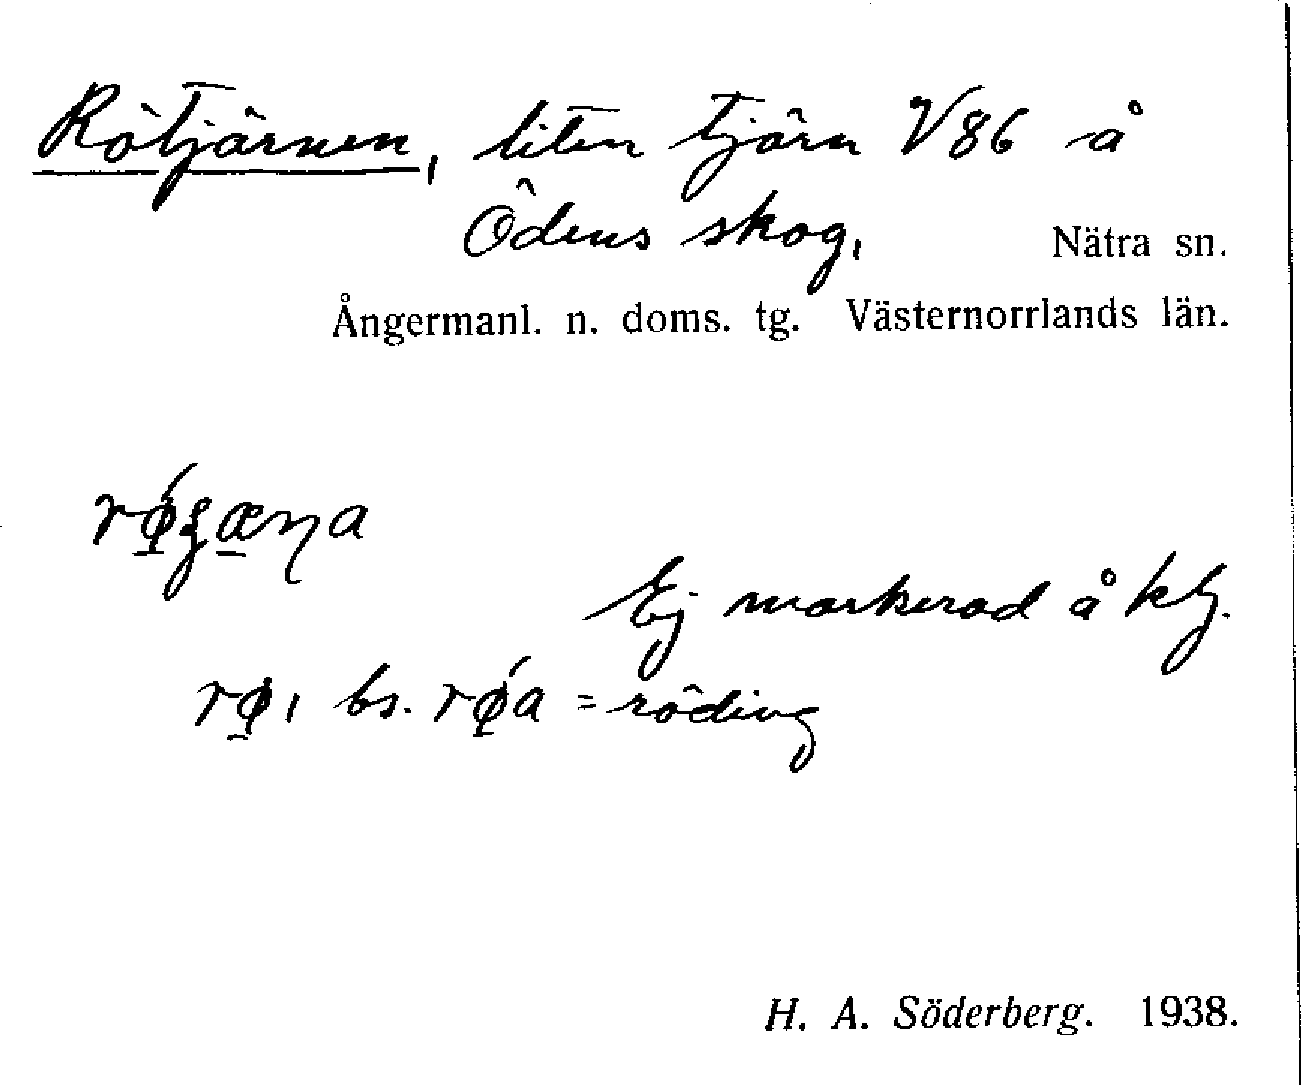 Rötjärnen, liten tjärn V86 å
Ödens skog, Nätra sn.
Ångermanl. n. doms. tg. Västernorrlands län.
Ej markerad å kbj.
rø, bs. rǿa = röding
H. A. Söderberg. 1938.